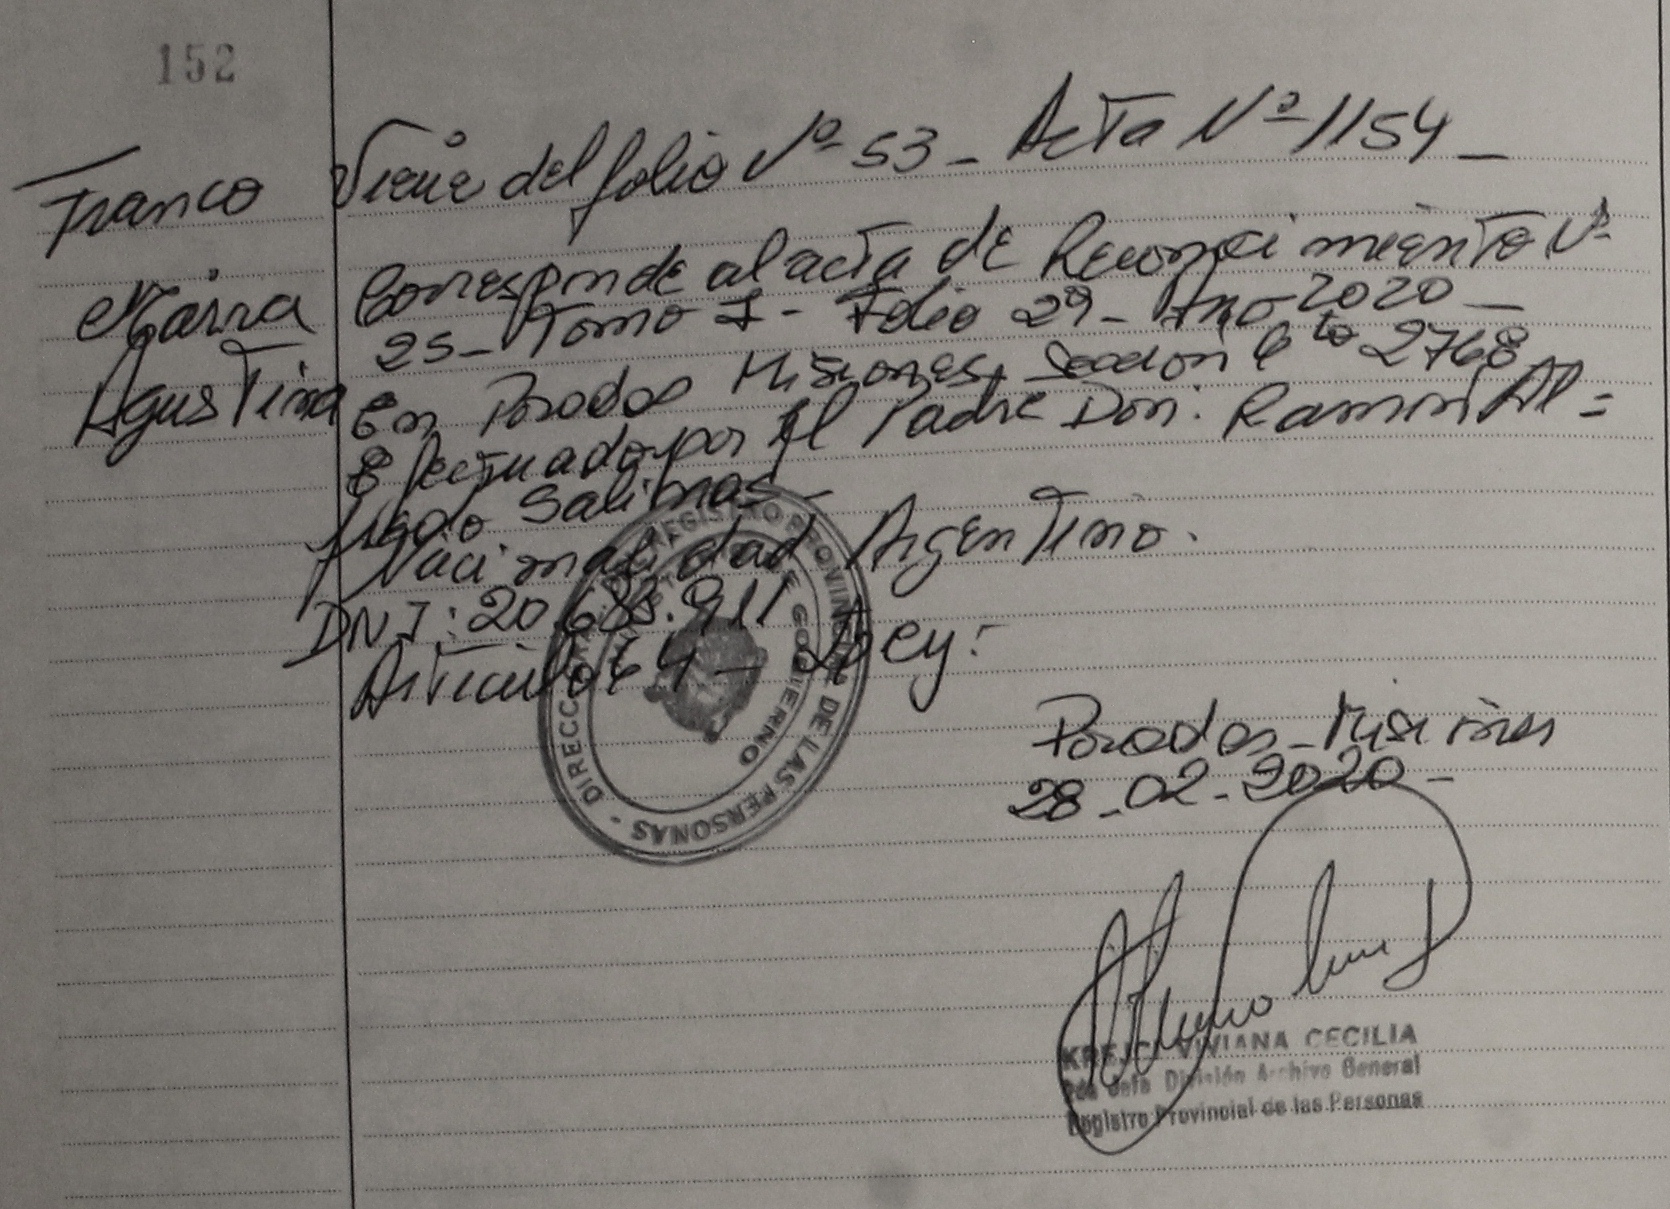 152
Franco
María
Agustina
Viene del folio Nº 53 - Acta Nº 1154 -
Corresponde al acta de Reconocimiento Nº
25 - Tomo I - Folio 29 - Año 2020 -
en Posadas Misiones, Sección 4 to 2768
Efectuado por el Padre Don: Ramón Al=
fredo Salinas -
Nacionalidad Argentino.
DNI: 20.633.911
Articulo 64 - Ley:
Posadas - Misiones
28-02-2020-
DIRECC REGISTRO PROVINCIAL DE LAS PERSONAS -
DE GOBIERNO
KREJCI VIVIANA CECILIA
2da Jefe División Archivo General
Registro Provincial de las Personas